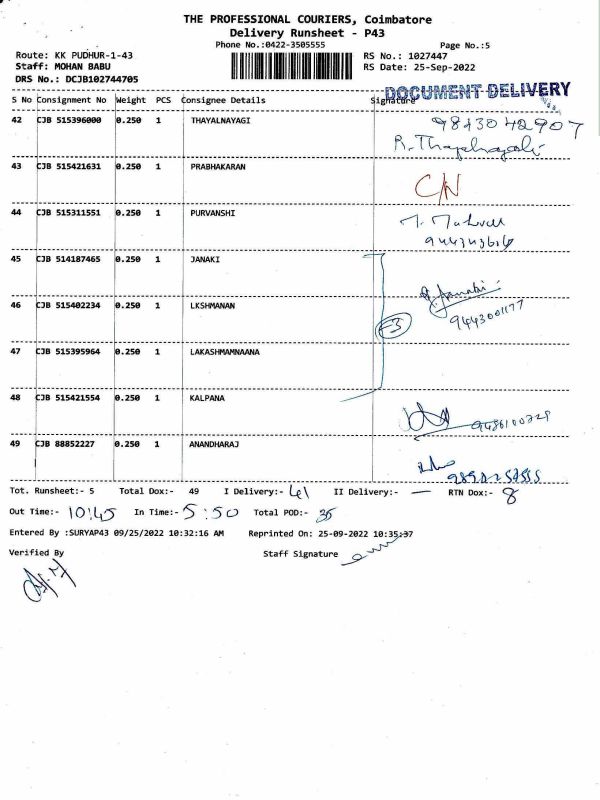 THE PROFESSIONAL COURIERS, Coimbatore
Delivery Runsheet - P43
Phone No.:0422-3505555
Page No.:5
Route: KK PUDHUR-1-43
RS No.: 1027447
Staff: MOHAN BABU
RS Date: 25-Sep-2022
DRS No.: DCJB102744705
DOCUMENT DELIVERY
S No Consignment No Weight PCS Consignee Details Signature
42 CJB 515396000 0.250 1 THAYALNAYAGI 9843042907
43 CJB 515421631 0.250 1 PRABHAKARAN C/N
44 CJB 515311551 0.250 1 PURVANSHI
45 CJB 514187465 0.250 1 JANAKI
46 CJB 515402234 0.250 1 LKSHMANAN 9443001177
47 CJB 515395964 0.250 1 LAKASHMAMNAANA
48 CJB 515421554 0.250 1 KALPANA
49 CJB 88852227 0.250 1 ANANDHARAJ
Tot. Runsheet:- 5 Total Dox:- 49 I Delivery:- 41 II Delivery:- — RTN Dox:- 8
Out Time:- 10:45 In Time:- 5:50 Total POD:- 35
Entered By :SURYAP43 09/25/2022 10:32:16 AM Reprinted On: 25-09-2022 10:35:37
Verified By Staff Signature